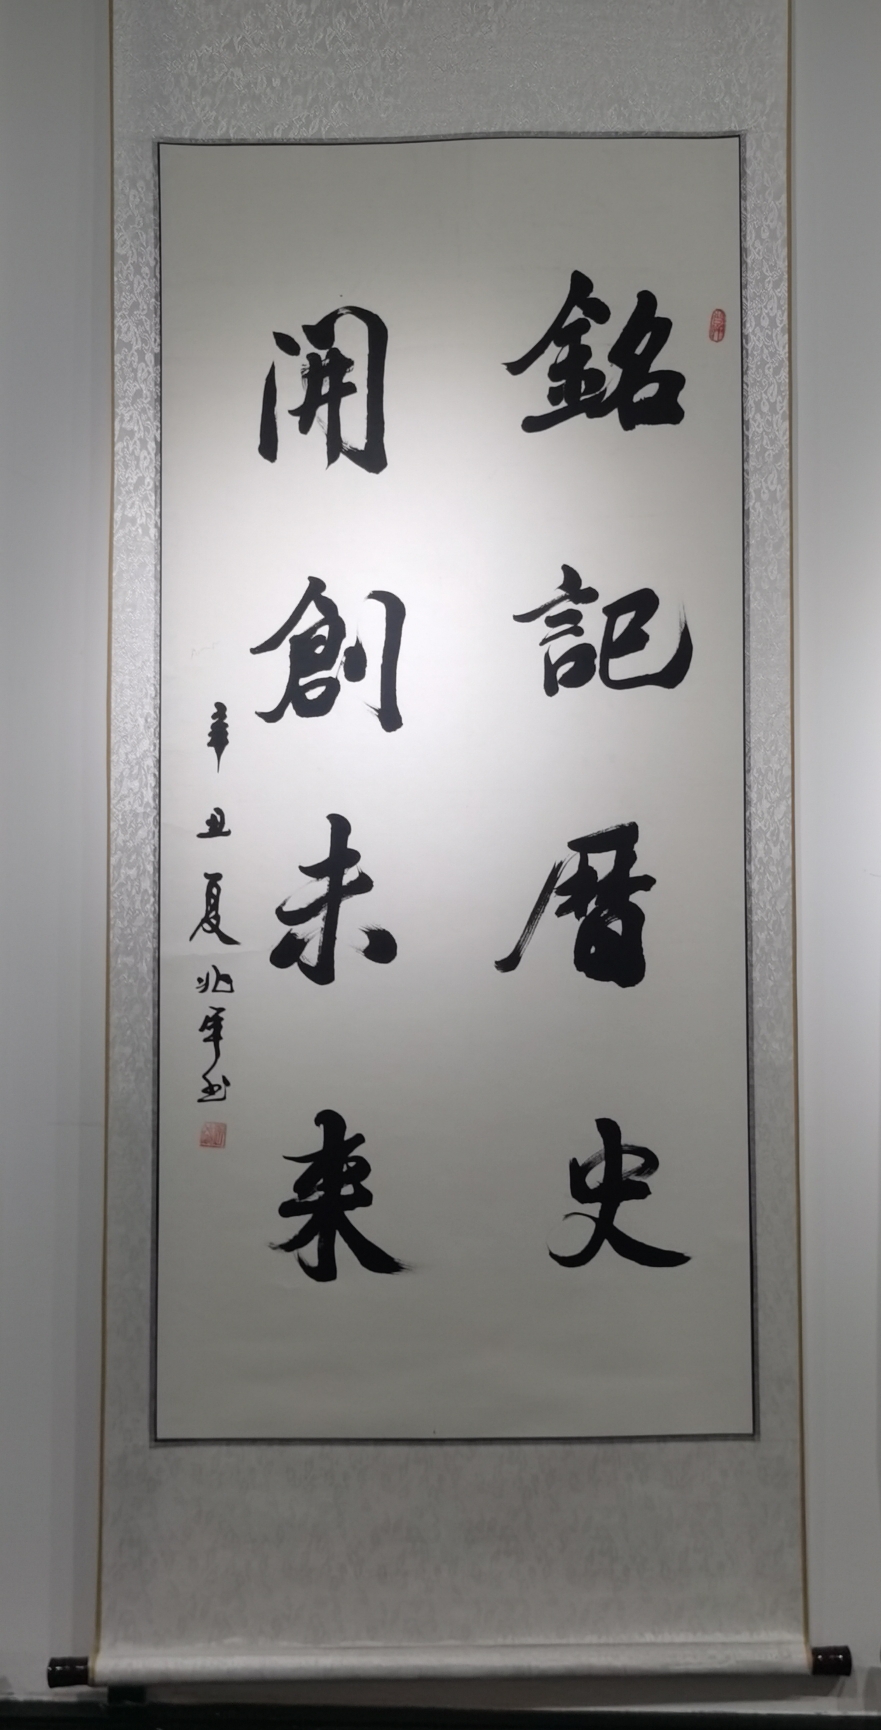 銘記曆史
開創未来
辛丑夏兆軍书